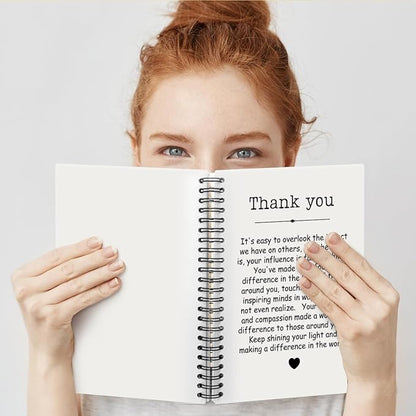 Thank you
It's easy to overlook the
we have on others,
is, your influence is
You've made
difference in the
around you, touch
inspiring minds in wa
not even realize. Your
and compassion made a wo
difference to those around you
Keep shining your light and
making a difference in the wor